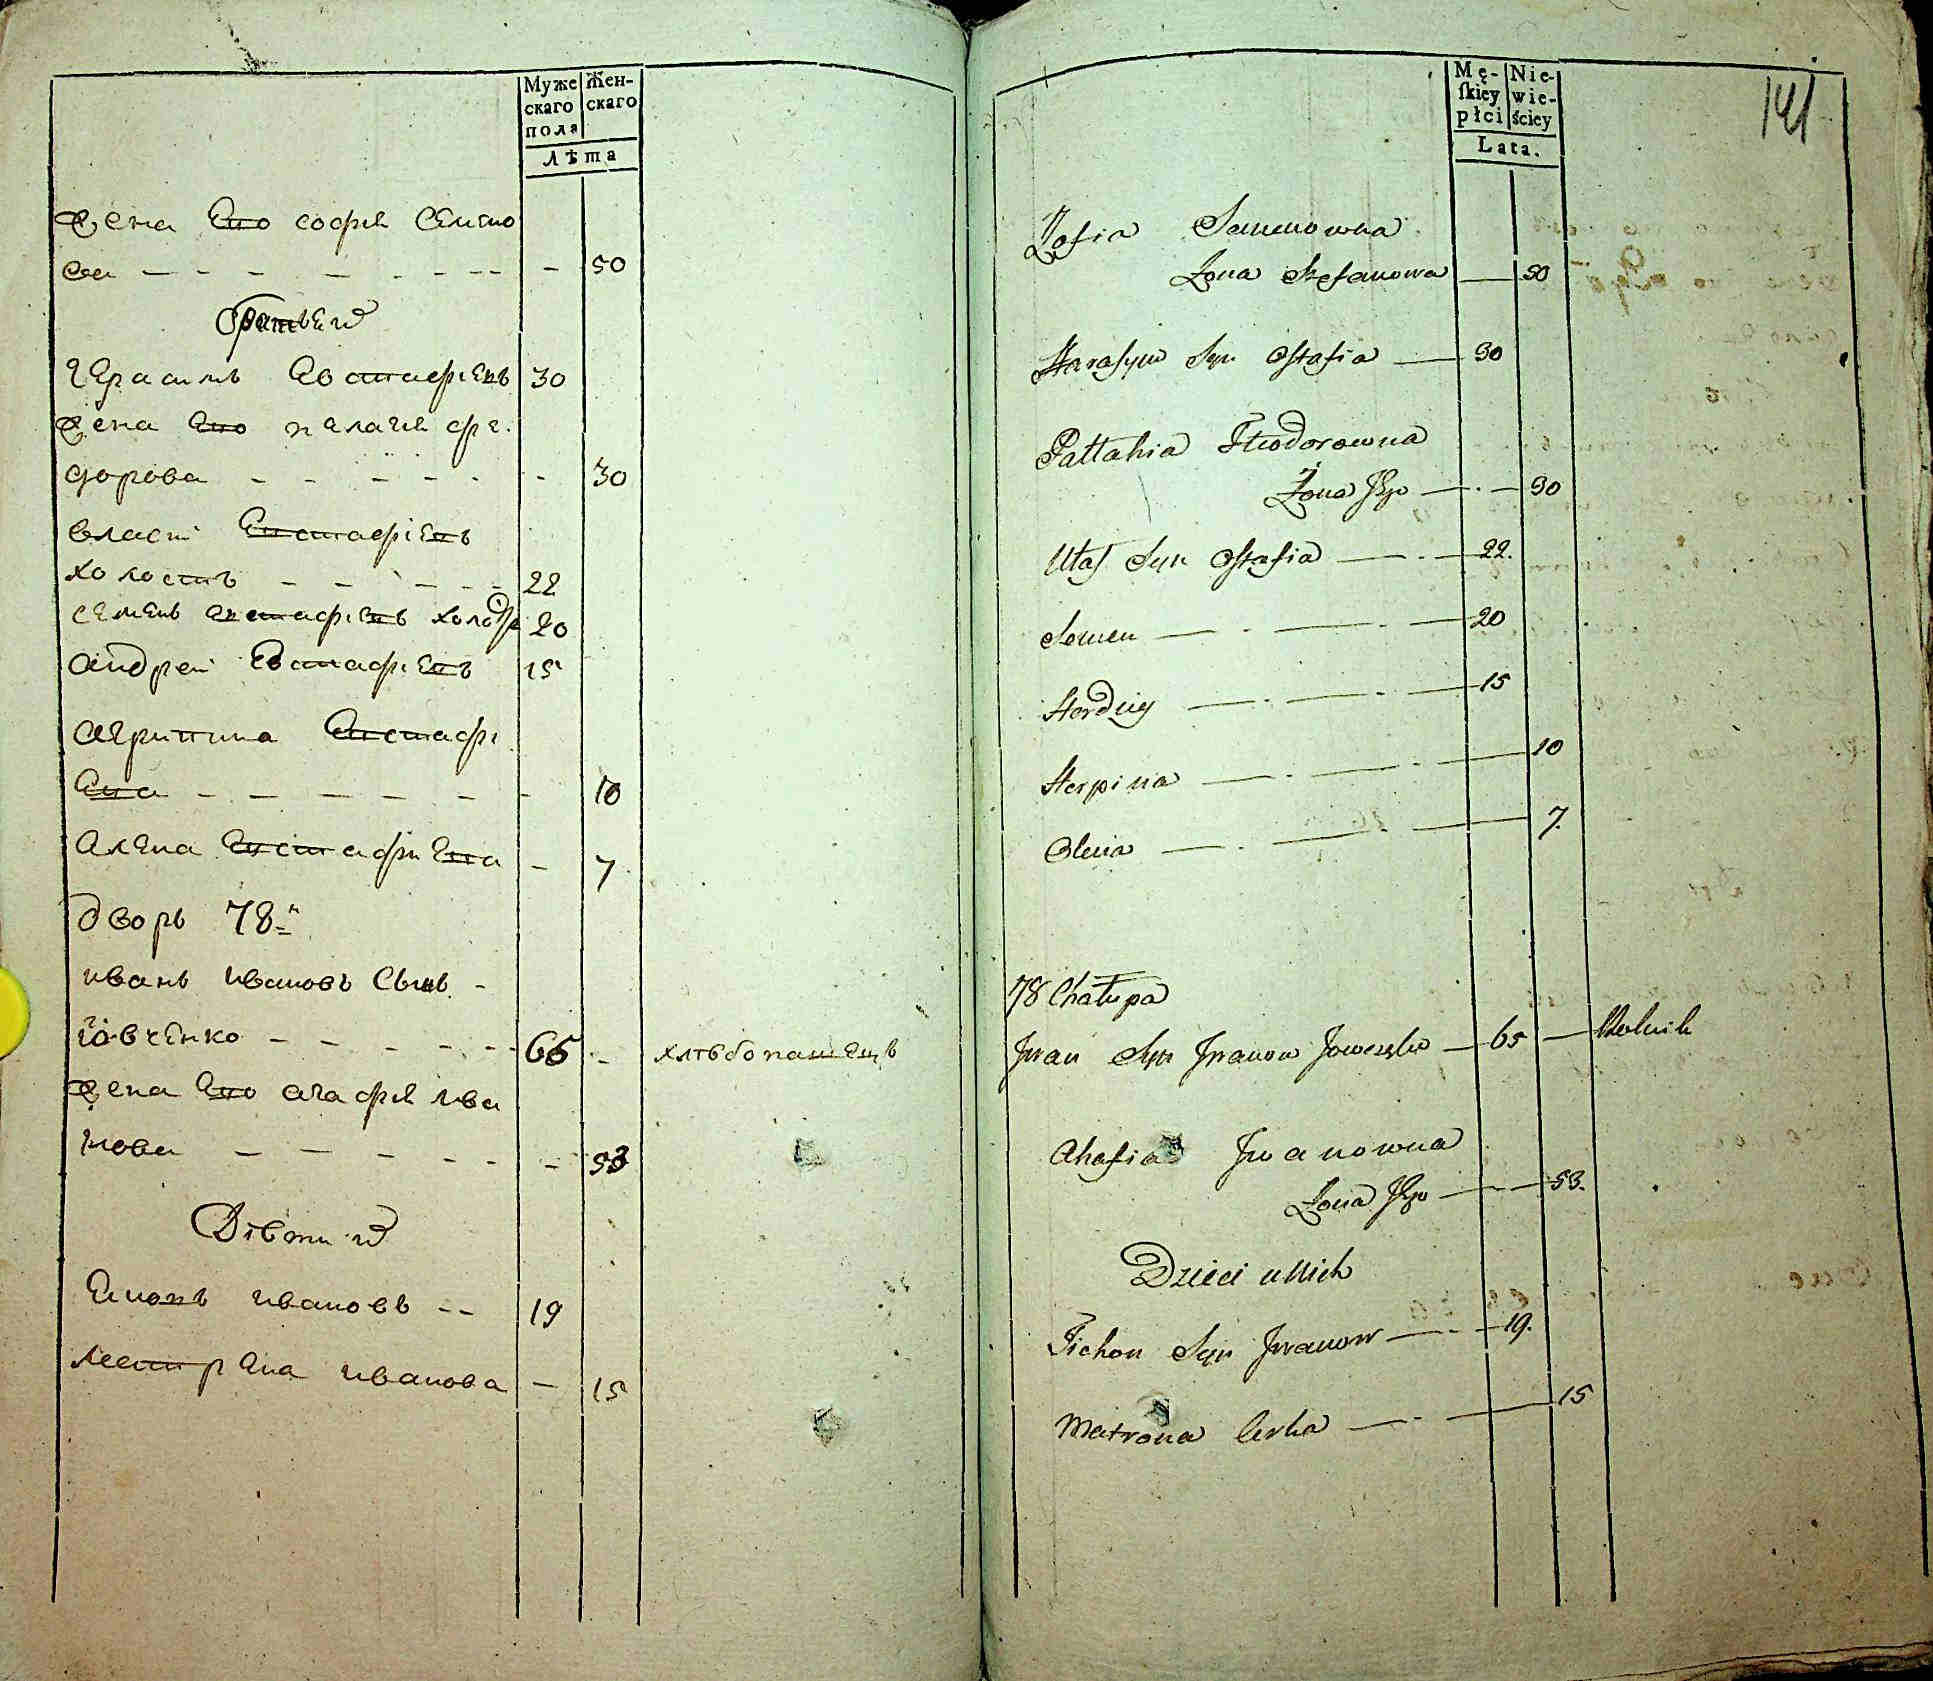 Муже
скаго
пола
Жен-
скаго
Лѣта
жена Его софия Семено
ва - - - - - - - - 50
братьЕи
гЕрасимъ Евстафіевъ 30
жена Его пЕлагия фе.
дорова - - - - - - 30
власъ Евстафіевъ
холостъ - - - - - 22
сЕмЕнъ Евстафіевъ холо 20
андреи Евстафіевъ 15
агрипина Евстафі
Ева - - - - - - - 10
алЕна ЕвстафиЕва - 7
дворъ 78й
иванъ ивановъ Сынъ -
іовчЕнко - - - - - - 65 - хлѣбопашЕцъ
жена Его агафия ива
нова - - - - - - - 53
Дѣти и
ивановъ - - 19
ивановa - 15
141
Mę-
ſkiey
płci
Nie-
wie-
ściey
Lata.
Zofia Semenowna
Zona Stefanowa — 50
Harasym Syn Ostafia — 30
Pallahia Fteodorowna
Żona Jego — . — 30
Ułas Syn Ostafia — . — 22.
Semen — . — . — 20
Hordiey — . — . — 15
Horpina — . — . — 10
Olena — . — . — 7.
78 Chałupa
Jwan Syn Jwanow — 65 — Rolnik
Ahafia Jwanowna
Zona Jego — — 53.
Dzieci u Nich
Tichon Syn Jwanow — . — 19.
Matrona Corka — . — 15